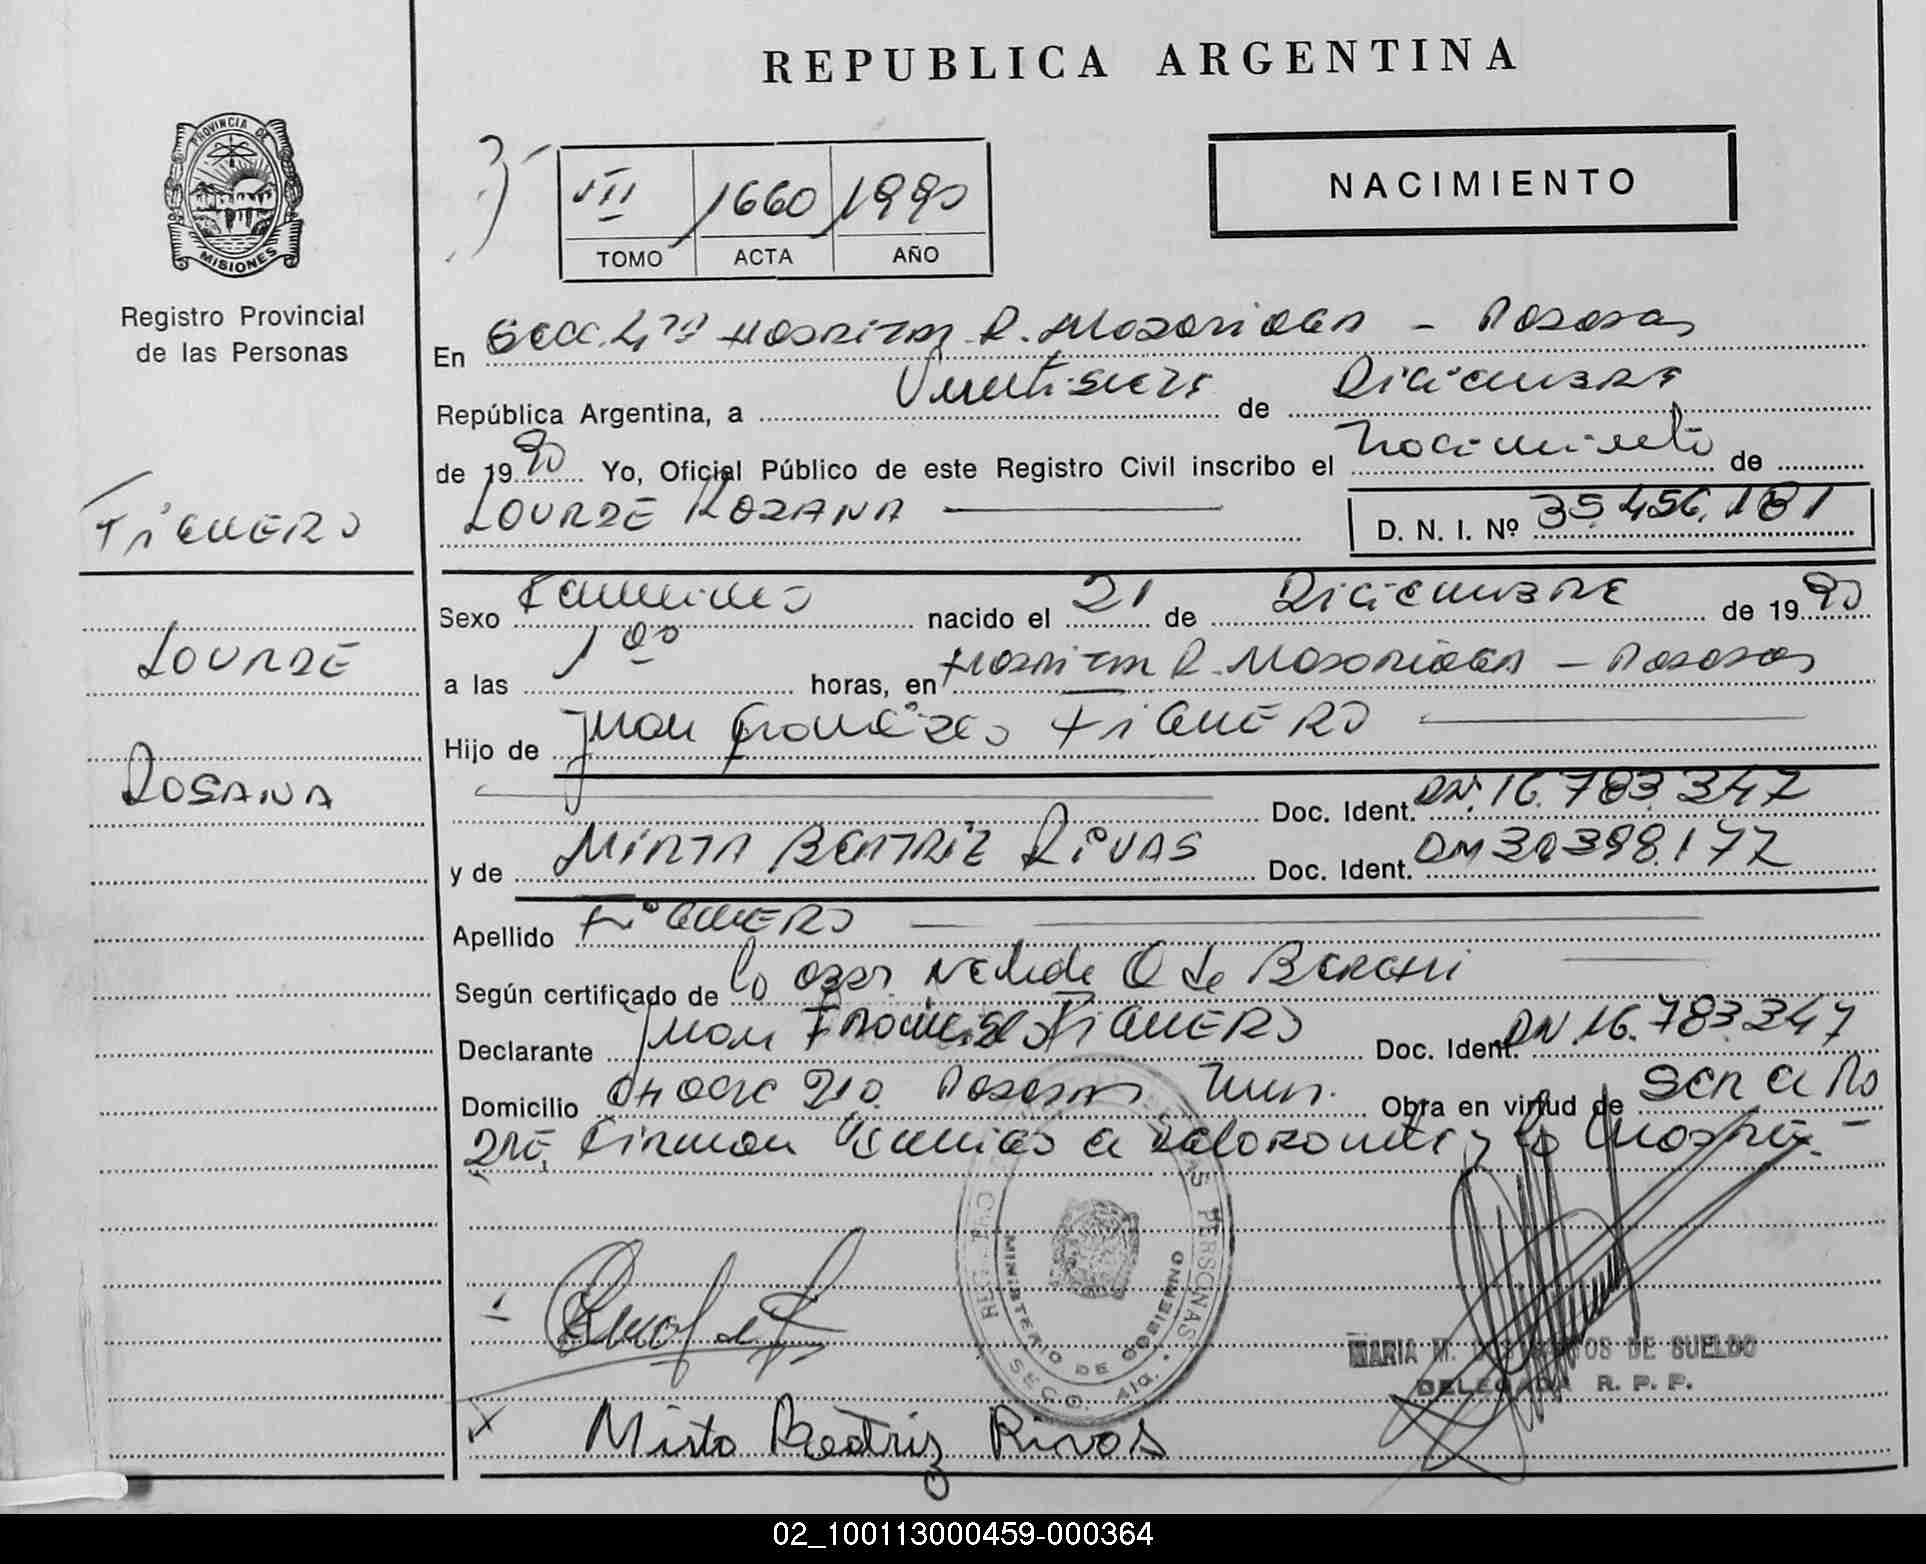 REPUBLICA ARGENTINA
PROVINCIA DE
MISIONES
Registro Provincial
de las Personas
VII 1660 1990
TOMO ACTA AÑO
NACIMIENTO
En Secc. 4ta Hospital R. Madariaga - Posadas
República Argentina, a Veintiseis de Diciembre
de 1990 Yo, Oficial Público de este Registro Civil inscribo el Nacimiento de
FIGUERO
LOURDE ROSANA
D. N. I. Nº 35.456.181
Sexo Femenino nacido el 21 de Diciembre de 1990
LOURDE
a las 1 00 horas, en Hospital R. Madariaga - Posadas
Hijo de Juan Francisco FIGUERO
ROSANA
Doc. Ident. DNI. 16.783.347
y de MIRTA BEATRIZ RIVAS Doc. Ident. DNI 30.398.177
Apellido FIGUERO
Según certificado de la obst. Nelida O de
Declarante Juan Francisco FIGUERO Doc. Ident. DNI 16.783.347
Domicilio 210. Posadas Mnes. Obra en virtud de ser el Pa
dre, Firman
MINISTERIO DE GOBIERNO
MARIA M. DE SUELDO
DELEGADA R. P. P.
Mirta Beatriz Rivas
02_100113000459-000364